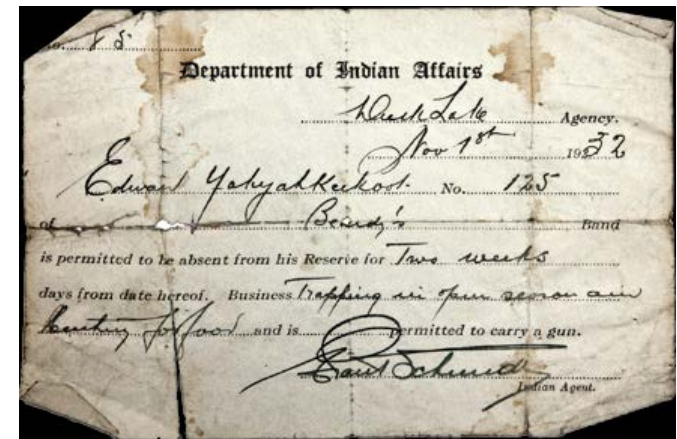 No. 85
Department of Indian Affairs
Duck Lake Agency.
Nov 1st 1932
Edward Yahyahkeekoot No. 125
of Beardy's Band
is permitted to be absent from his Reserve for Two weeks
days from date hereof. Business Trapping in open season and
hunting for food and is permitted to carry a gun.
Schmidt
Indian Agent.